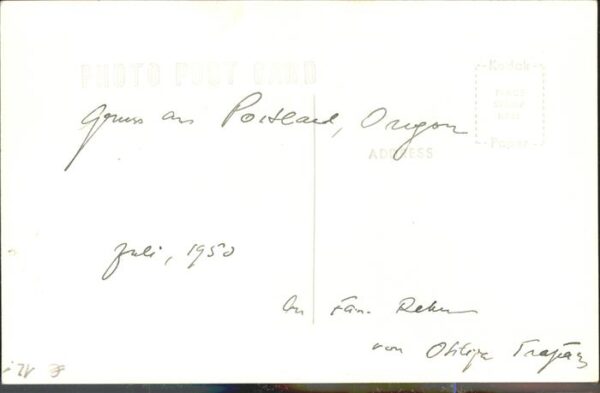 PHOTO POST CARD
Kodak
PLACE
STAMP
HERE
Paper
Gruss aus Portland, Oregon
ADDRESS
Juli, 1950
An Fam.
von